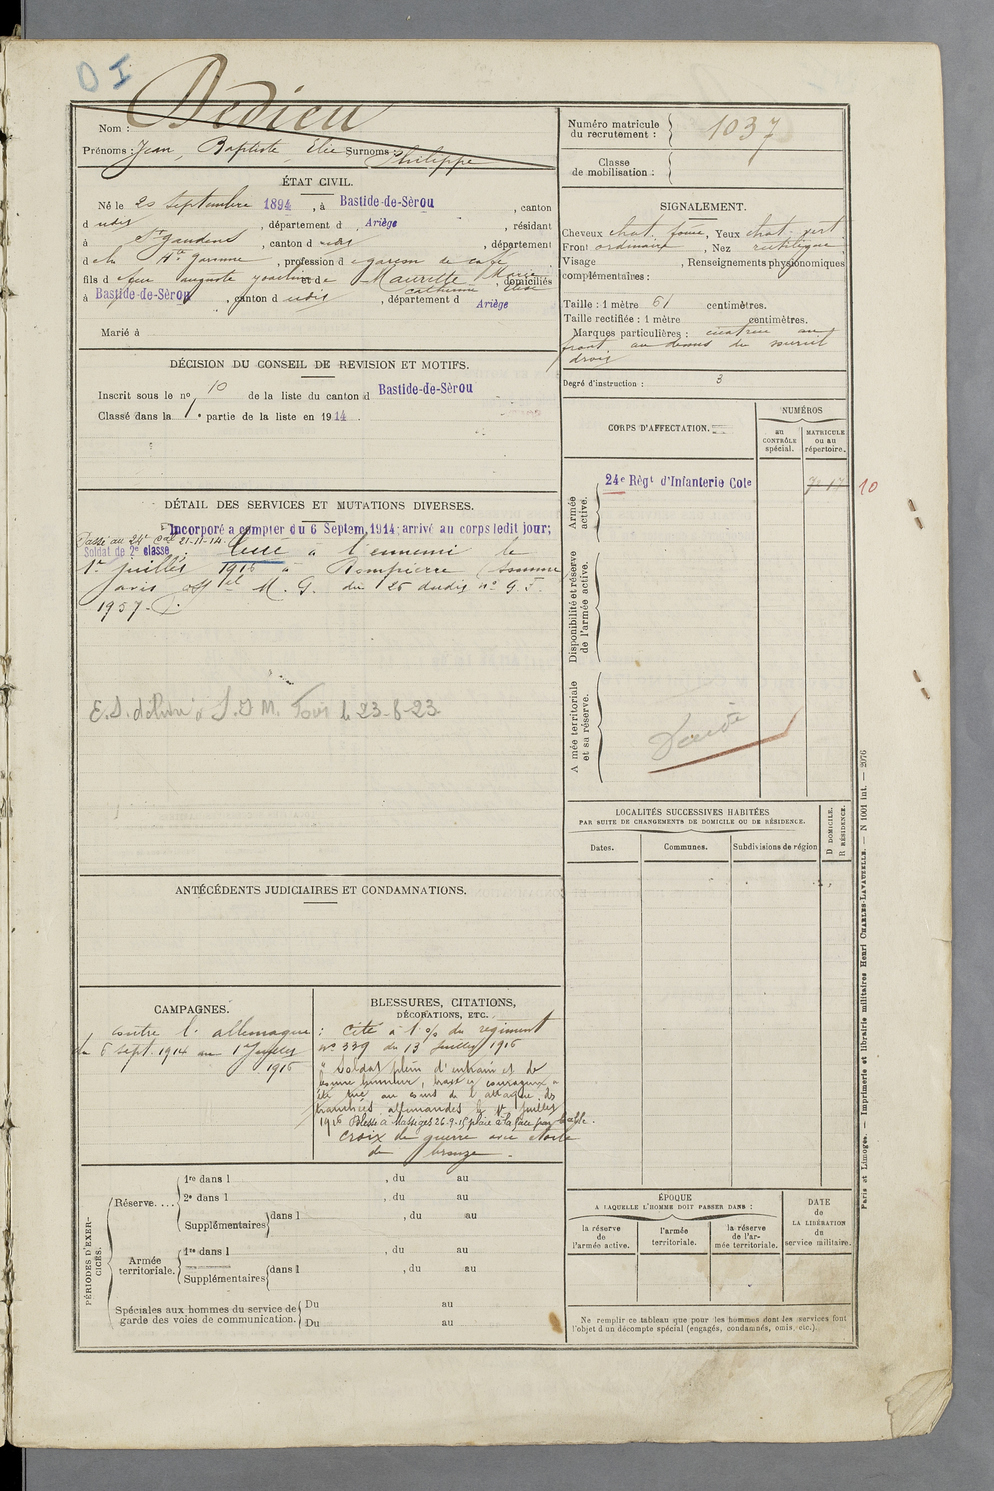 D I
Nom : Dedieu
Prénoms : Jean, Baptiste, Elie Surnoms : Philippe
ÉTAT CIVIL.
Né le 20 septembre 1894, à Bastide-de-Sèrou, canton
d udis, département d Ariège, résidant
à St Gaudens, canton d udis, département
d e la Hte Garonne, profession d e garçon de café
fils d e feu auguste et de Maurette Marie
catherine Elise, domiciliés
à Bastide-de-Sèrou, canton d udis, département d Ariège
Marié à
DÉCISION DU CONSEIL DE REVISION ET MOTIFS.
Inscrit sous le no 10 de la liste du canton d Bastide-de-Sèrou
Classé dans la 1re partie de la liste en 1914.
DÉTAIL DES SERVICES ET MUTATIONS DIVERSES.
Incorporé a compter du 6 Septem. 1914; arrivé au corps ledit jour;
Passé au 24e Cal 21-11-14.
Soldat de 2e classe. Tué à l'ennemi le
1er juillet 1916 à Dompierre (Somme
avis offel M. G. du 25 dudis no G F.
1957.
E.S. délivré à S.D M. Foix le 23-8-23
ANTÉCÉDENTS JUDICIAIRES ET CONDAMNATIONS.
CAMPAGNES.
contre l'allemagne
du 6 sept. 1914 au 1er Juillet
1916
BLESSURES, CITATIONS,
DÉCORATIONS, ETC.
: Cité à l'o/ du régiment
no 339 du 13 Juillet 1916
" Soldat plein d'entrain et de
bonne humeur, très courageux a
été tué au cours de l'attaque des
tranchées allemandes le 1er juillet
1916 Blessé à Massiges 26-9-15 plaie à la face par balle.
Croix de guerre avec etoile
de bronze.
PÉRIODES D'EXERCICES.
Réserve....
1re dans l , du au
2e dans l , du au
Supplémentaires dans l , du au
Armée territoriale.
1re dans l , du au
Supplémentaires dans l , du au
Spéciales aux hommes du service de garde des voies de communication.
Du au
Du au
Numéro matricule du recrutement : 1037
Classe de mobilisation :
SIGNALEMENT.
Cheveux chat. foncé, Yeux chat. vert.
Front ordinaire, Nez rectiligne
Visage , Renseignements physionomiques
complémentaires :
Taille : 1 mètre 61 centimètres.
Taille rectifiée : 1 mètre centimètres.
Marques particulières : cicatrice au
front au dessus du sourcil
droit
Degré d'instruction : 3
CORPS D'AFFECTATION.
NUMÉROS
au CONTRÔLE spécial.
MATRICULE ou au répertoire.
Armée active.
24e Règt d'Infanterie Cole
10
Disponibilité et réserve de l'armée active.
Armée territoriale et sa réserve.
LOCALITÉS SUCCESSIVES HABITÉES
PAR SUITE DE CHANGEMENTS DE DOMICILE OU DE RÉSIDENCE.
Dates.
Communes.
Subdivisions de région
D DOMICILE.
R RÉSIDENCE.
ÉPOQUE
A LAQUELLE L'HOMME DOIT PASSER DANS :
la réserve de l'armée active.
l'armée territoriale.
la réserve de l'armée territoriale.
DATE de LA LIBÉRATION du service militaire.
Ne remplir ce tableau que pour les hommes dont les services font
l'objet d'un décompte spécial (engagés, condamnés, omis, etc.).
Paris et Limoges. — Imprimerie et librairie militaires Henri CHARLES-LAVAUZELLE. — N 1001 int. — 2076